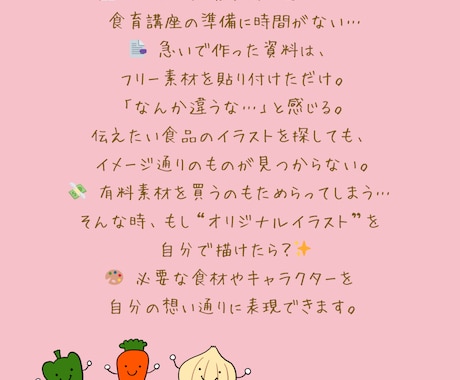 食育講座の準備に時間がない…
急いで作った資料は、
フリー素材を貼り付けただけ。
「なんか違うな…」と感じる。
伝えたい食品のイラストを探しても、
イメージ通りのものが見つからない。
有料素材を買うのもためらってしまう…
そんな時、もし“オリジナルイラスト”を
自分で描けたら?
必要な食材やキャラクターを
自分の想い通りに表現できます。